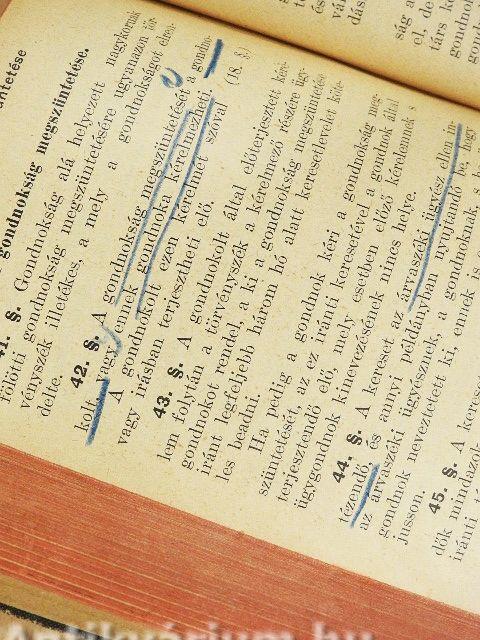 gondnokság megszüntetése.
41. §. Gondnokság alá helyezett nagykorúak
fölötti gondnokság megszüntetésére ugyanazon tör-
vényszék illetékes, a mely a gondnokságot elren-
delte. (18. §.)
42. §. A gondnokság megszüntetését a gondno-
kolt, vagy ennek gondnoka kérelmezheti.
A gondnokolt ezen kérelmét szóval
vagy irásban terjesztheti elő.
43. §. A gondnokolt által előterjesztett kére-
lem folytán a törvényszék a kérelmező részére ügy-
gondnokot rendel, a ki a gondnokság megszüntetése
iránt legfeljebb három hó alatt keresetlevelet köte-
les beadni.
Ha pedig a gondnok kéri a gondnokság meg-
szüntetését, az ez iránti keresetével a gondnok által
terjesztendő elő, mely esetben előző kérelemnek s
ügygondnok kinevezésének nincs helye.
44. §. A kereset az árvaszéki ügyész ellen in-
tézendő, és annyi példányban nyujtandó be, hogy
az árvaszéki ügyésznek, a gondnoknak s
gondnok neveztetett ki, ennek is
jusson.
45. §. A kereset
dők mindazok
iránti
Antikvárium.hu